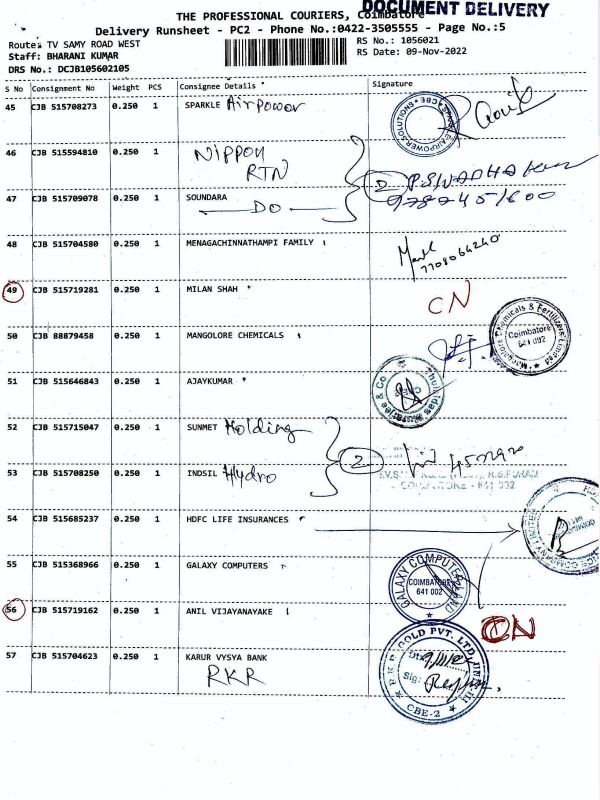 DOCUMENT DELIVERY
THE PROFESSIONAL COURIERS, Coimbatore
Delivery Runsheet - PC2 - Phone No.:0422-3505555 - Page No.:5
Route: TV SAMY ROAD WEST
Staff: BHARANI KUMAR
DRS No.: DCJB105602105
RS No.: 1056021
RS Date: 09-Nov-2022
S No Consignment No Weight PCS Consignee Details Signature
45 CJB 515708273 0.250 1 SPARKLE Airpower
46 CJB 515594810 0.250 1 NIPPON
RTN
47 CJB 515709078 0.250 1 SOUNDARA
DO
2
48 CJB 515704580 0.250 1 MENAGACHINNATHAMPI FAMILY
7708064240
49 CJB 515719281 0.250 1 MILAN SHAH
CN
50 CJB 88879458 0.250 1 MANGOLORE CHEMICALS
Mangalore Chemicals & Fertilizers Limited
Coimbatore
641 002
51 CJB 515646843 0.250 1 AJAYKUMAR
52 CJB 515715047 0.250 1 SUNMET Holding
53 CJB 515708250 0.250 1 INDSIL Hydro
2
R.S.PURAM
COIMBATORE - 641 002
54 CJB 515685237 0.250 1 HDFC LIFE INSURANCES
55 CJB 515368966 0.250 1 GALAXY COMPUTERS
GALAXY COMPUTER
COIMBATORE
641 002
56 CJB 515719162 0.250 1 ANIL VIJAYANAYAKE
CN
57 CJB 515704623 0.250 1 KARUR VYSYA BANK
RKR
GOLD PVT. LTD.
CBE-2